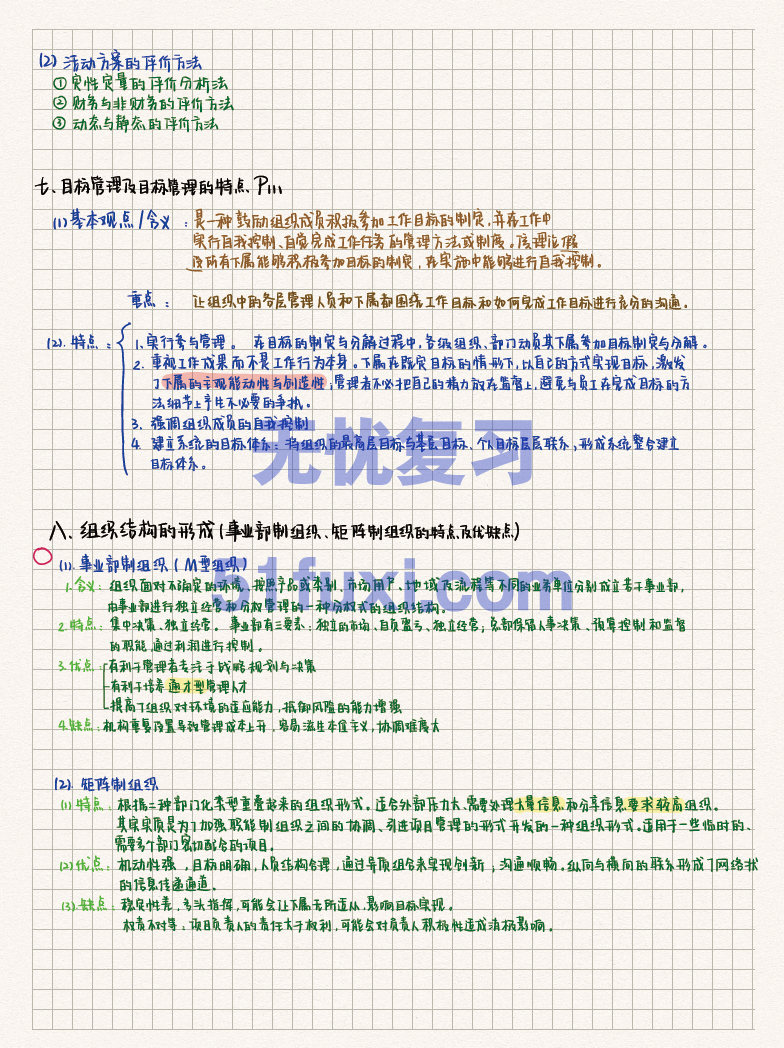 (2) 活动方案的评价方法
① 定性定量的评价分析法
② 财务与非财务的评价方法
③ 动态与静态的评价方法
七、目标管理及目标管理的特点、P111
(1)基本观点/含义：是一种鼓励组织成员积极参加工作目标的制定,并在工作中
实行自我控制、自觉完成工作任务的管理方法或制度。该理论假
设所有下属能够积极参加目标的制定,在实施中能够进行自我控制。
重点：让组织中的各层管理人员和下属都围绕工作目标和如何完成工作目标进行充分的沟通.
(2).特点：1.实行参与管理。在目标的制定与分解过程中,各级组织、部门动员其下属参加目标制定与分解。
2.重视工作成果而不是工作行为本身。下属在既定目标的情形下,以自己的方式实现目标,激发
了下属的主观能动性与创造性;管理者不必把自己的精力放在监督上,避免与员工在完成目标的方
法细节上产生不必要的争执。
3.强调组织成员的自我控制
4.建立系统的目标体系：将组织的最高层目标与基层目标、个人目标层层联系,形成系统整合建立
目标体系。
无忧复习
八、组织结构的形成(事业部制组织、矩阵制组织的特点及优缺点)
(1).事业部制组织(M型组织)
51fuxi.com
1.含义：组织面对不确定的环境,按照产品或类别、市场用户、地域及流程等不同的业务单位分别成立若干事业部,
由事业部进行独立经营和分权管理的一种分权式的组织结构。
2.特点：集中决策、独立经营。事业部有三要素：独立的市场、自负盈亏、独立经营;总部保留人事决策、预算控制和监督
的职能,通过利润进行控制.
3.优点：有利于管理者专注于战略规划与决策
有利于培养通才型管理人才
提高了组织对环境的适应能力,抵御风险的能力增强
4.缺点：机构重复设置导致管理成本上升,容易滋生本位主义,协调难度大
(2).矩阵制组织
(1)特点：根据二种部门化类型重叠起来的组织形式。适合外部压力大、需要处理大量信息和分享信息要求较高组织。
其实实质是为了加强职能制组织之间的协调、引进项目管理的形式开发的一种组织形式.适用于一些临时的、
需要多个部门密切配合的项目.
(2)优点：机动性强,目标明确,人员结构合理,通过异质组合来实现创新;沟通顺畅.纵向与横向的联系形成了网络状
的信息传递通道.
(3).缺点：稳定性差,多头指挥,可能会让下属无所适从,影响目标实现。
权责不对等：项目负责人的责任大于权利,可能会对负责人积极性造成消极影响。